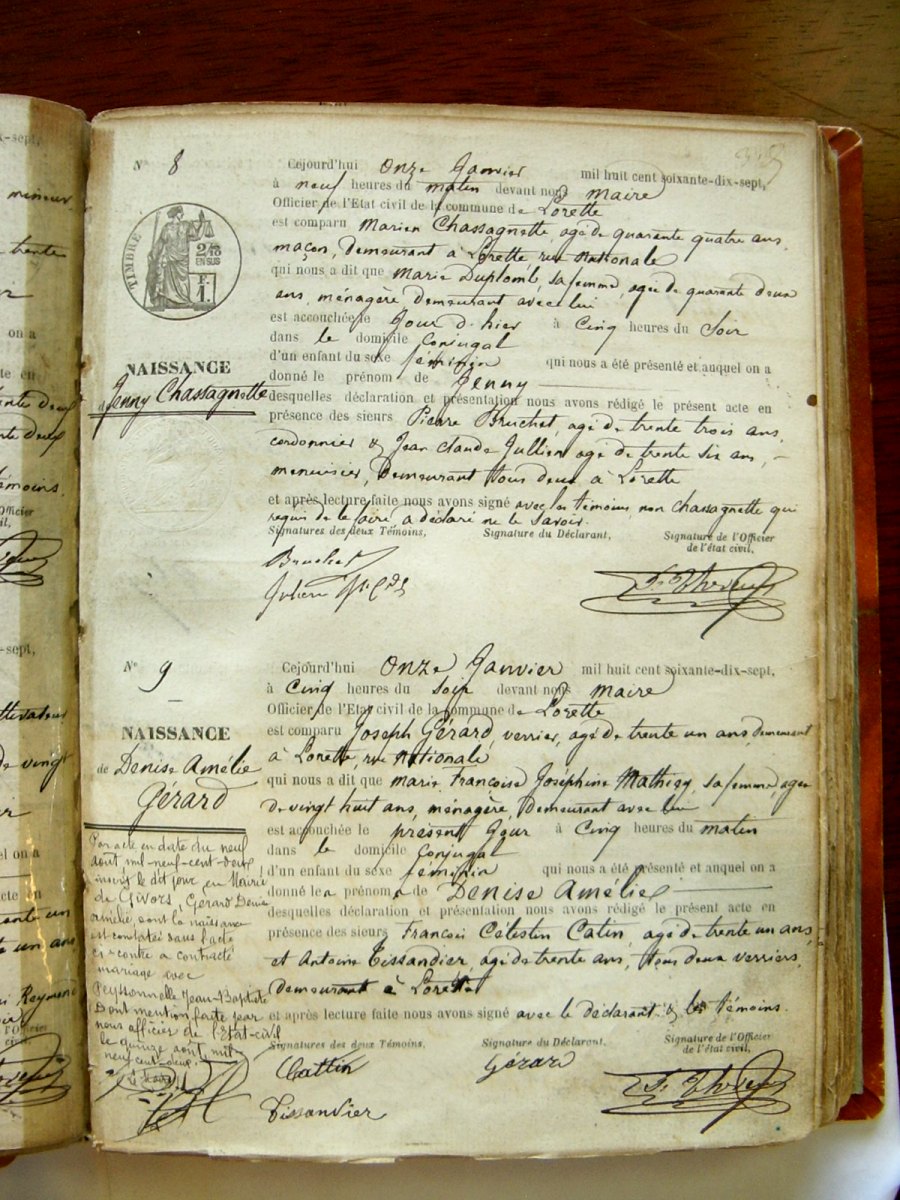 Nº 8
Cejourd'hui Onze Janvier mil huit cent soixante-dix-sept,
à neuf heures du matin devant nous Maire
Officier de l'Etat civil de la commune de Lorette
est comparu Marien Chassagnette, agé de quarante quatre ans,
maçon, demeurant à Lorette rue Nationale
qui nous a dit que Marie Duplomb, sa femme, agée de quarante deux
ans, ménagère demeurant avec lui
est accouchée le Jour d'hier à Cinq heures du Soir
dans le domicile Conjugal
d'un enfant du sexe féminin qui nous a été présenté et auquel on a
donné le prénom de Jenny
desquelles déclaration et présentation nous avons rédigé le présent acte en
présence des sieurs Pierre Bruchet, agé de trente trois ans,
cordonnier & Jean Claude Jullien agé de trente six ans,
menuisier, demeurant tous deux à Lorette
et après lecture faite nous avons signé avec les témoins non Chassagnette qui
requis de le faire a déclaré ne le savoir.
Signatures des deux Témoins, Signature du Déclarant, Signature de l'Officier
de l'état civil,
Bruchet
TIMBRE
2/10
EN SUS
NAISSANCE
de Jenny Chassagnette
Nº 9
Cejourd'hui Onze Janvier mil huit cent soixante-dix-sept,
à Cinq heures du soir devant nous Maire
Officier de l'Etat civil de la commune de Lorette
est comparu Joseph Gérard, verrier, agé de trente un ans, demeurant
à Lorette, rue Nationale
qui nous a dit que Marie Françoise Joséphine Mathieu, sa femme agée
de vingt huit ans, ménagère, demeurant avec lui
est accouchée le présent Jour à Cinq heures du matin
dans le domicile Conjugal
d'un enfant du sexe féminin qui nous a été présenté et auquel on a
donné les prénoms de Denise Amélie
desquelles déclaration et présentation nous avons rédigé le présent acte en
présence des sieurs François Célestin Catin, agé de trente un ans,
et Antoine Tissandier, agé de trente ans, tous deux verriers,
demeurant à Lorette
et après lecture faite nous avons signé avec le déclarant & les témoins.
Signatures des deux Témoins, Signature du Déclarant, Signature de l'Officier
de l'état civil,
Cattin Gérard
Tissandier
NAISSANCE
de Denise Amélie
Gérard
Par acte en date du neuf
août mil-neuf-cent-deux,
inscrit le dit jour en Mairie
de Givors, Gérard Denise
Amélie, dont la naissance
est constatée dans l'acte
ci-contre a contracté
mariage avec
Peyssonnelle Jean-Baptiste
Dont mention faite par
nous officier de l'Etat-civil
le quinze août mil
neuf-cent-deux.